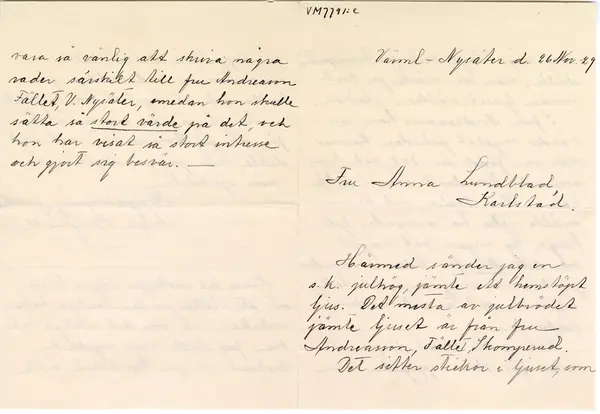 VM7791:2
vara så vänlig att skriva några
rader särskilt till fru Andreasson
Fället, V. Nysäter, emedan hon skulle
sätta så stort värde på det, och
hon har visat så stort intresse
och gjort sig besvär. —
Värml-Nysäter d. 26 Nov. 29
Fru Anna Lundblad
Karlstad.
Härmed sänder jag en
s.k. julhög, jämte ett hemstöpt
ljus. Det mesta av julbrödet
jämte ljuset är från fru
Andreasson, Fället, Skomperud.
Det sitter stickor i ljuset, som